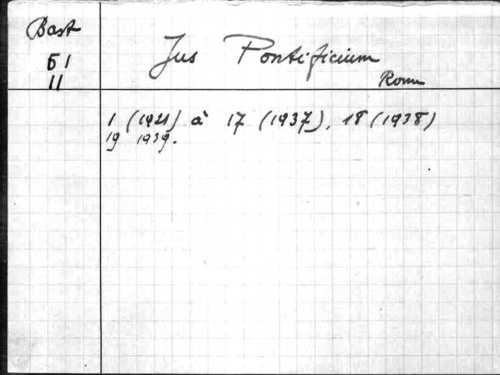 Bast
51
11
Jus Pontificium
Rome
1 (1921) à 17 (1937), 18 (1938)
19 1939.